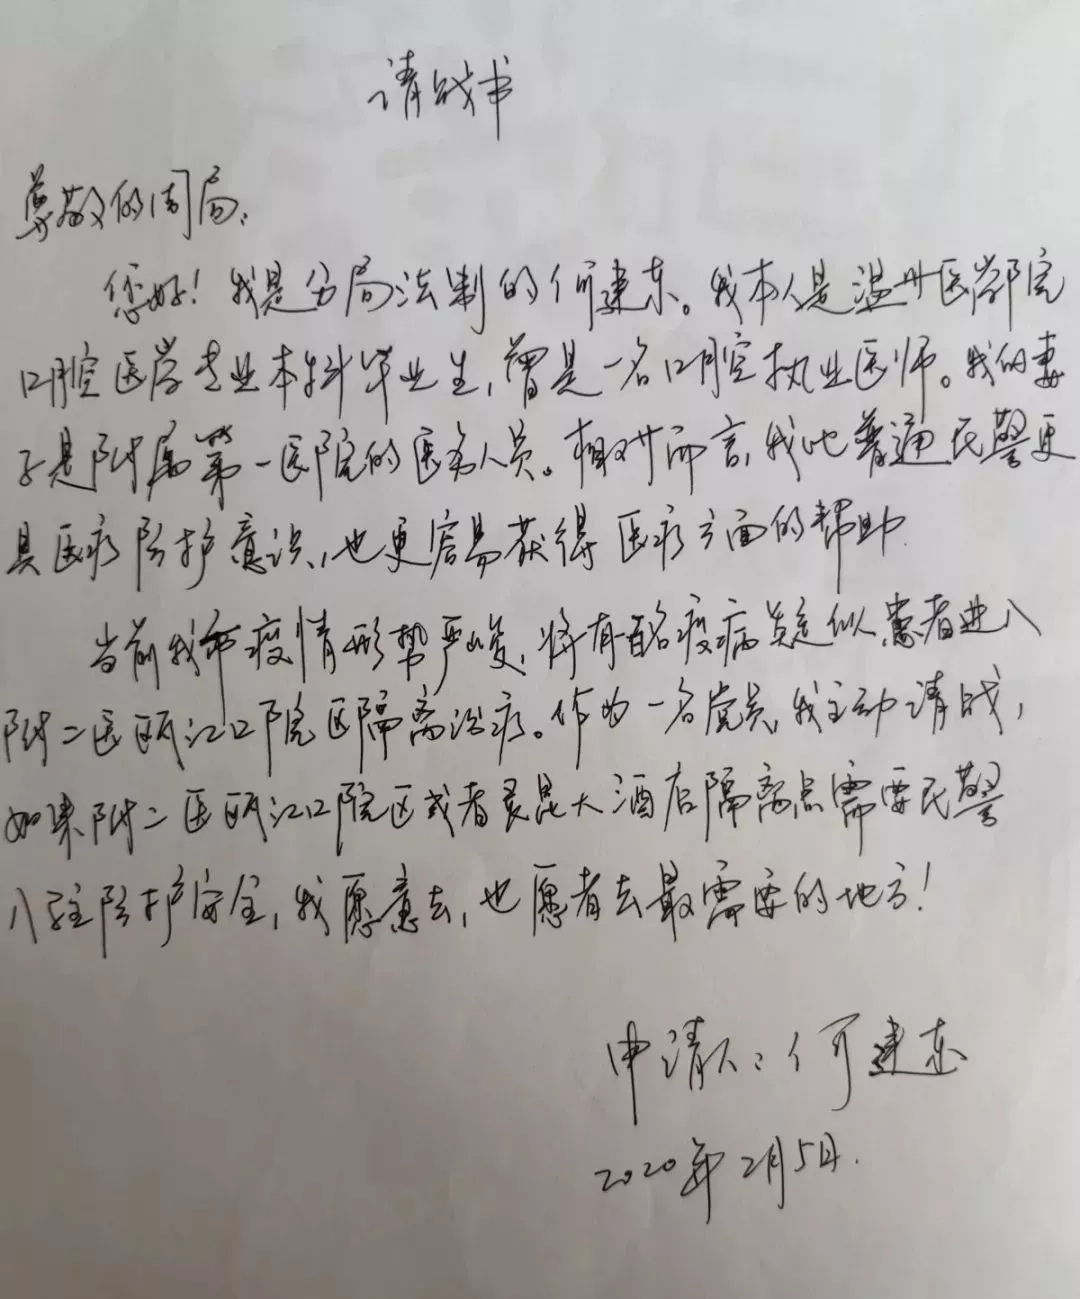 请战书
尊敬的周局：
您好！我是分局法制的何建东。我本人是温州医学院
口腔医学专业本科毕业生，曾是一名口腔执业医师。我的妻
子是附属第一医院的医务人员。相对而言，我比普通民警更
具医疗防护意识，也更容易获得医疗方面的帮助.
当前我市疫情形势严峻，将有一批疫病疑似患者进入
附二医瓯江口院区隔离治疗。作为一名党员，我主动请战，
如果附二医瓯江口院区或者昆大酒店隔离点需要民警
入驻防护安全，我愿意去，也愿者去最需要的地方！
申请人：何建东
2020年2月5日.